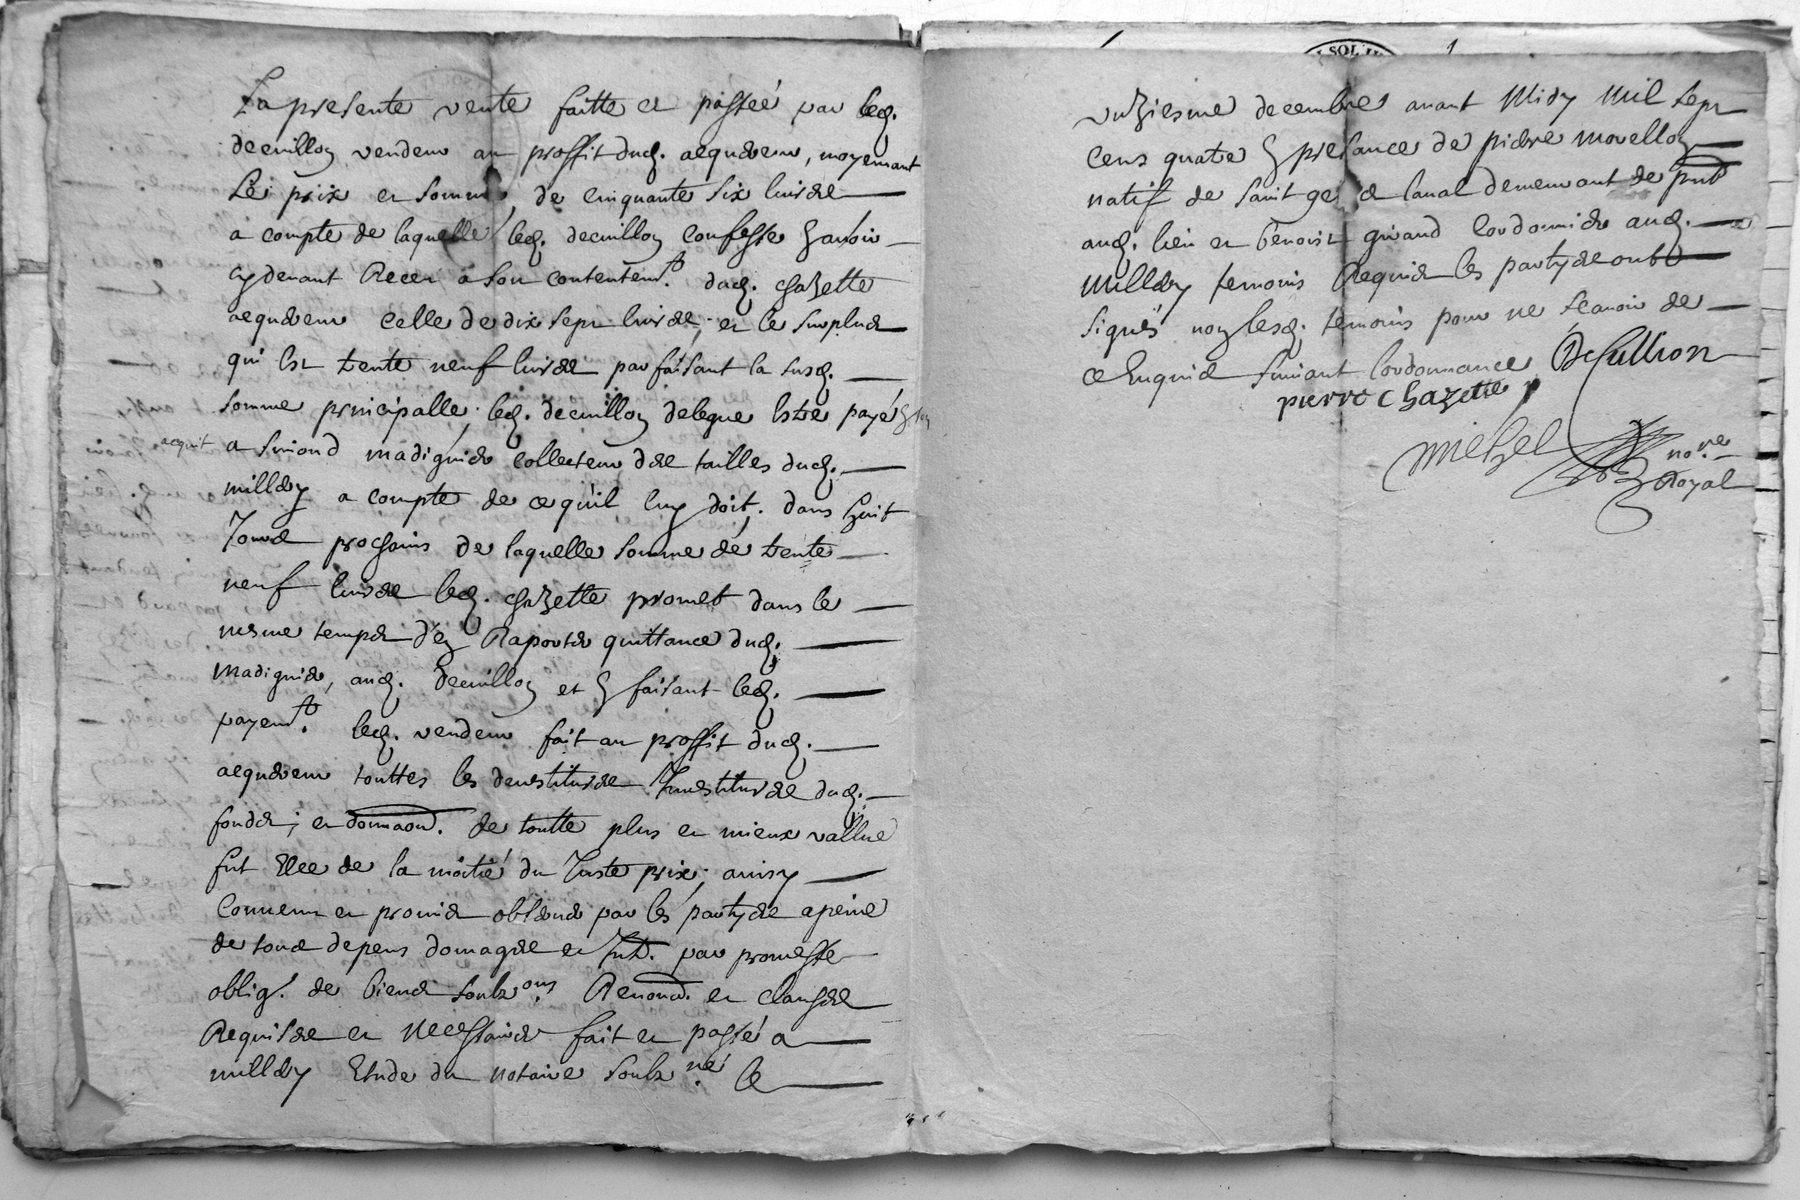 La presente vente faitte et passeé par led.
decuilloy vendeur au proffit dud. acquereur, moyennant
Le prix et somme de cinquante six livres
a compte de laquelle led. decuilloy confesse avoir
cy devant Receu a son contentemt. dud. chazette
acquereur celle de dix sept livres; et le surplus
qui est trente neuf livres parfaisant la susd.
somme principalle; led. decuilloy delegue estre payé
acquit
a simond madignier collecteur des tailles dud.
millery a compte de ce qu'il luy doit; dans huit
Jours prochains de laquelle somme de trente
neuf livres led. chazette promet dans le
mesme temps d'en Raporter quittance dud.
madignier, aud. decuilloy et faisant led.
payemt. led. vendeur fait au proffit dud.
acquereur touttes les devestitures Investitures dud.
fonds; et donnaon. de toutte plus et mieux vallue
fut Elle de la moitié du Juste prix; ainsy
Convenu et promis observer par les partyes a peine
de tous depens domages et Int. par promesse
oblig. de biens soubz ons Renond. et clauses
Requises et Necessaires fait et passé a
millery Etude du notaire soubz né le
unziesme decembre avant Midy Mil sept
Cens quatre presance de pierre morelloy
natif de saint ge laval demeurant de pnt
aud. lieu et benoist girand Cordonnier aud.
Millery temoins Requis les partyes ont
signés non lesd. temoins pour ne scavoir de
ce Enquis suivant l'ordonnance Decullion
pierre chazette
michel no.re
Royal